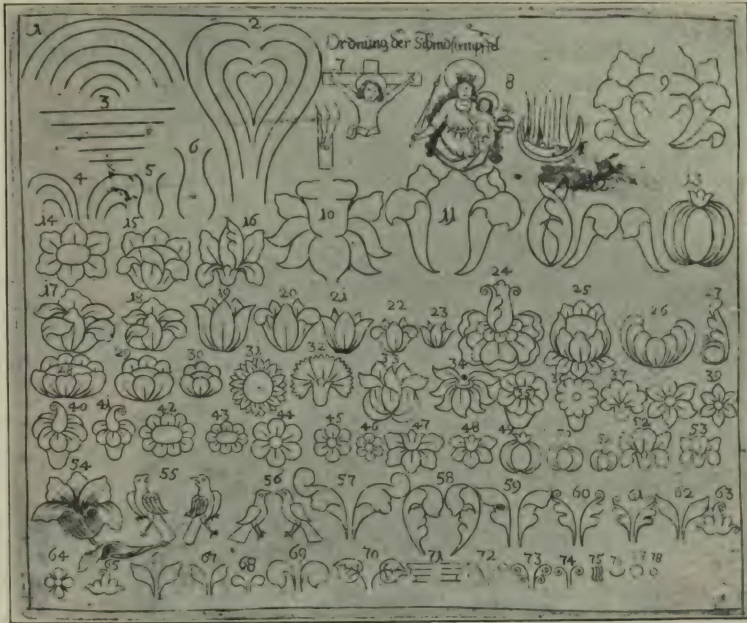 1 2 Ordnung der
7 8 9
3
4 5 6 10 11 12 13
14 15 16
17 18 19 20 21 22 23 24 25 26
28 29 30 31 32 33 34 37 39
40 41 42 43 44 45 46 47 48 49 52 53
54 55 56 57 58 59 60 61 62 63
64 65 67 68 69 70 71 72 73 74 75 78